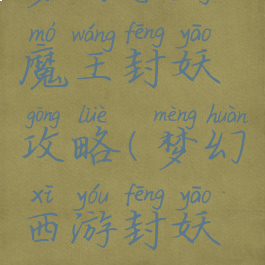 mó wáng fēng yāo
魔王封妖
gōng lüè mèng huàn
攻略(梦幻
xī yóu fēng yāo
西游封妖